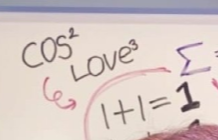 COS²
LOVE³
Σ
1+1=1